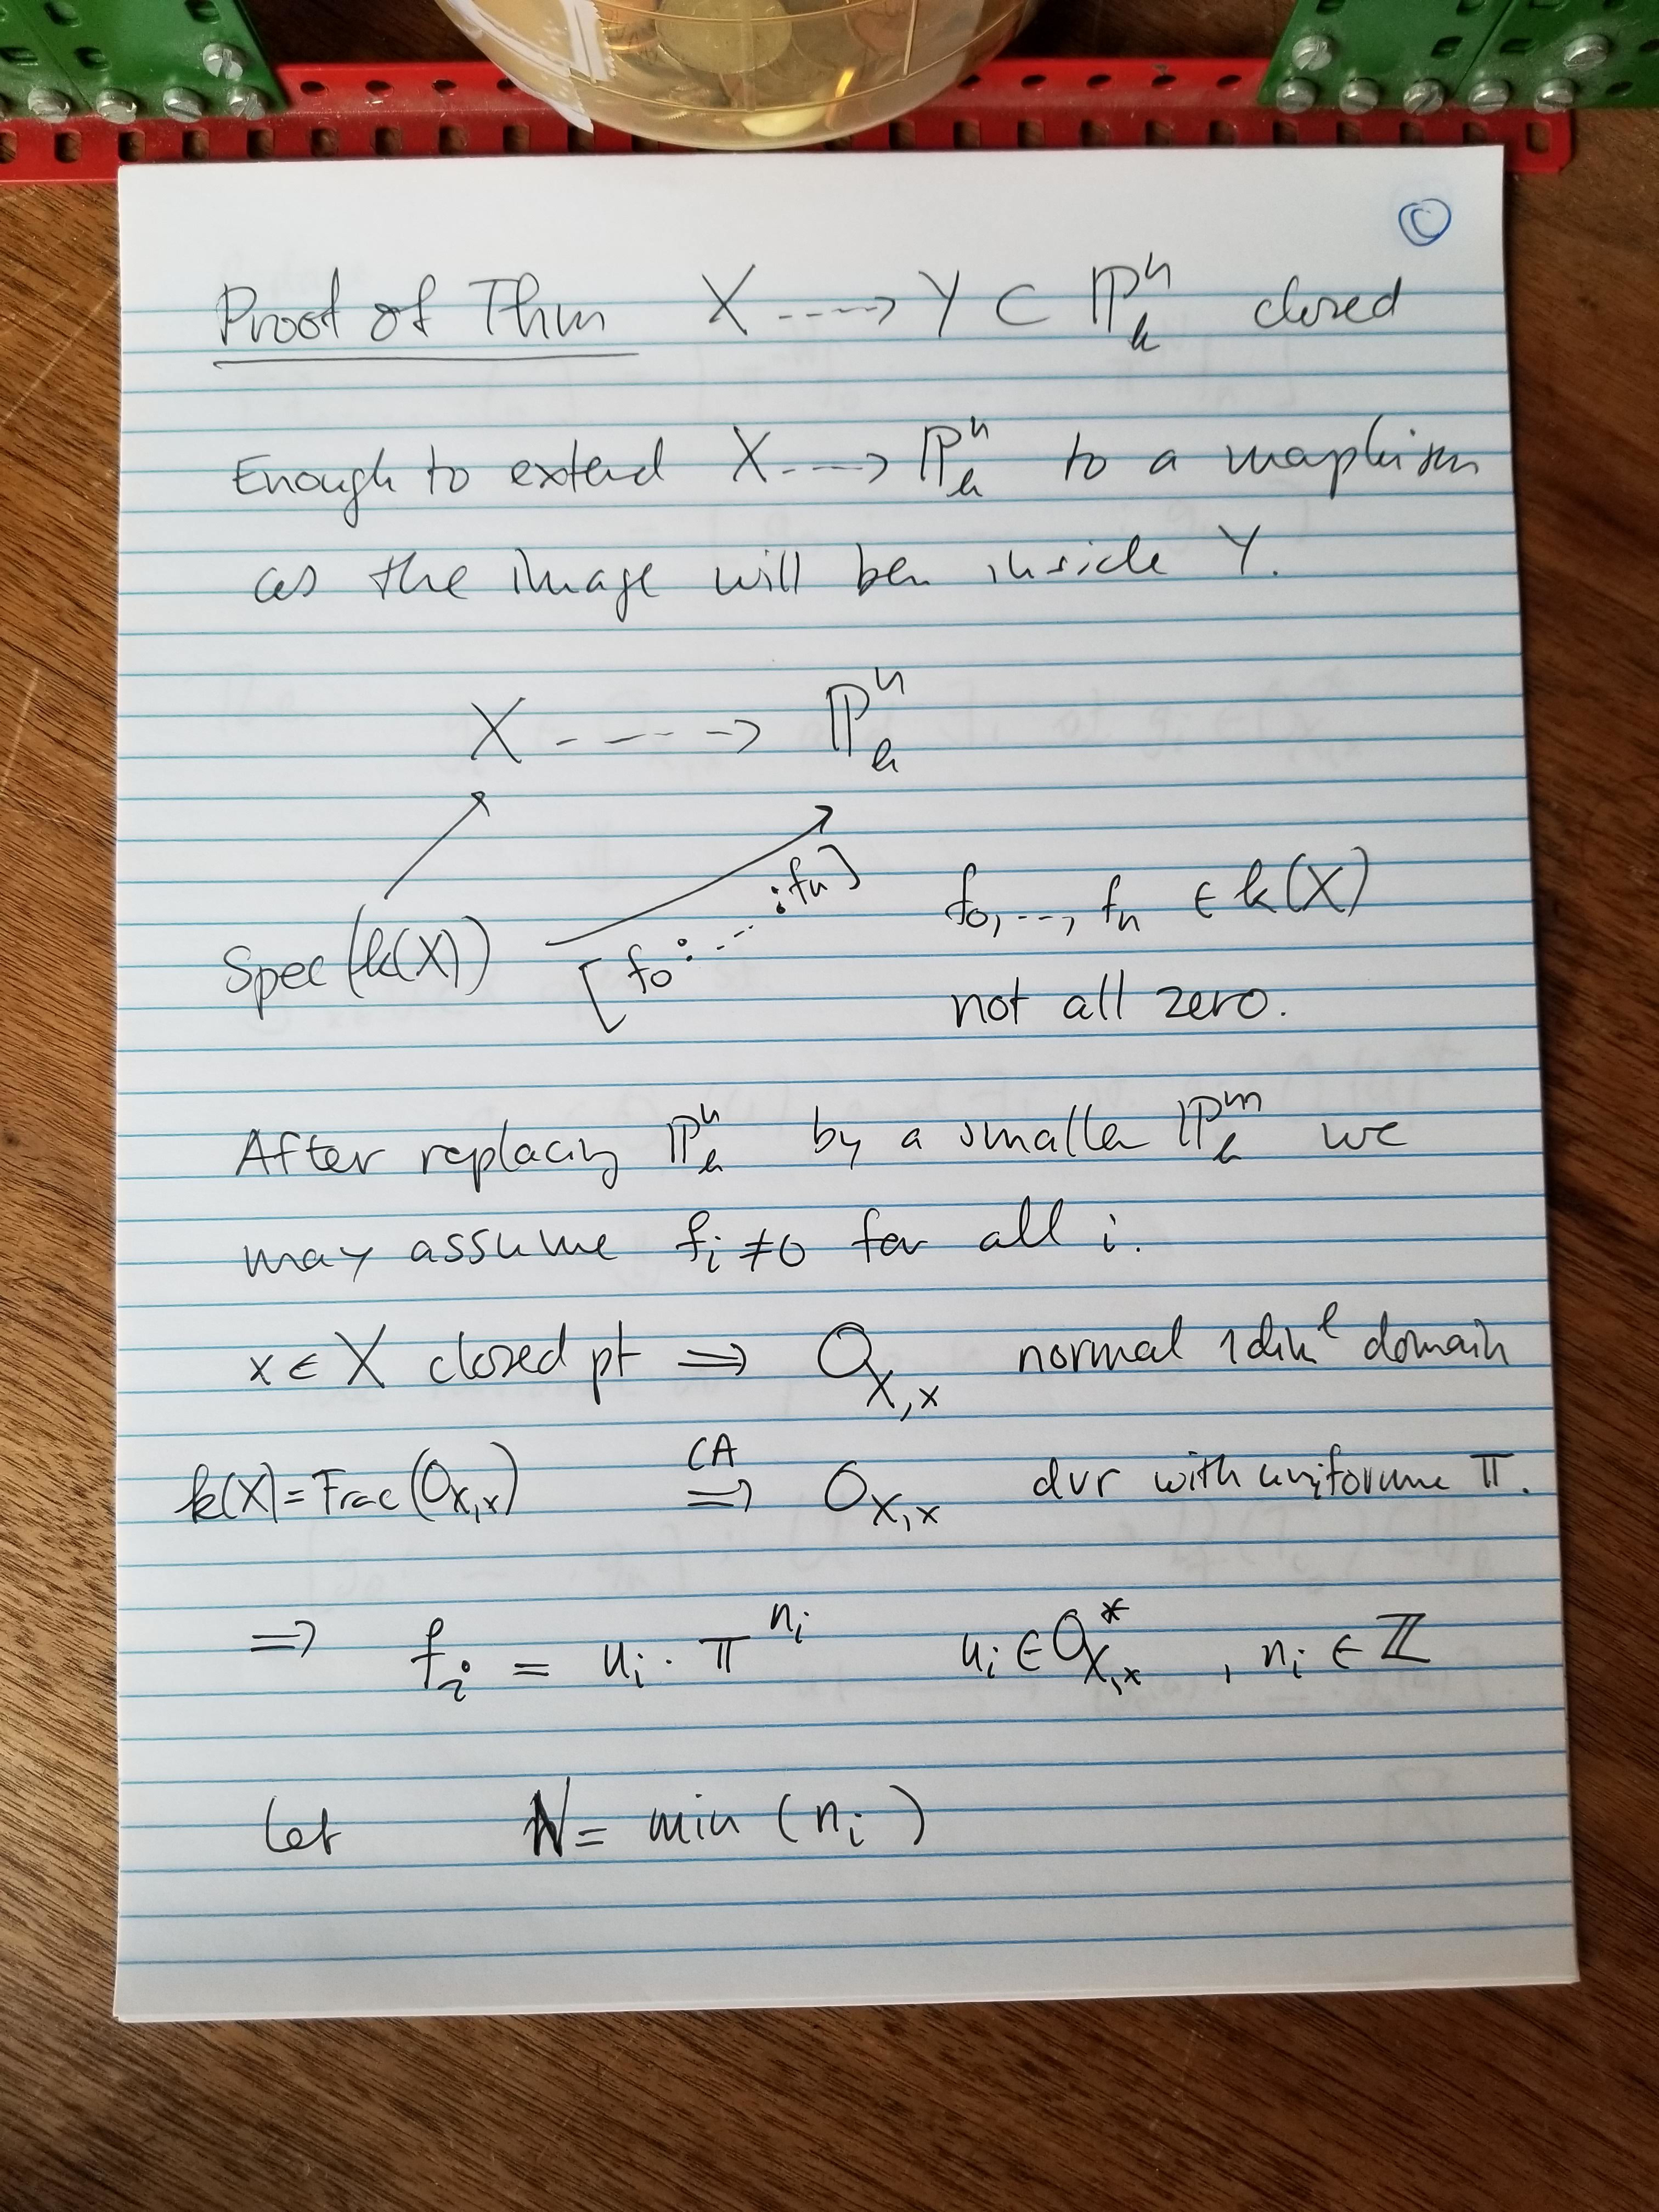 C
Proof of Thm X ----> Y ⊂ ℙ^n_k closed
Enough to extend X ---> ℙ^n_k to a morphism
as the image will be inside Y.
X ----> ℙ^n_k
Spec(k(X)) [f_0: ... :f_n] f_0, ..., f_n ∈ k(X)
not all zero.
After replacing ℙ^n_k by a smaller ℙ^m_k we
may assume f_i ≠ 0 for all i.
x ∈ X closed pt ⇒ O_{X,x} normal 1 dim^l domain
k(X) = Frac(O_{X,x}) CA ⇒ O_{X,x} dvr with uniforme π.
⇒ f_i = u_i · π^{n_i} u_i ∈ O^*_{X,x} , n_i ∈ ℤ
Let N = min (n_i)